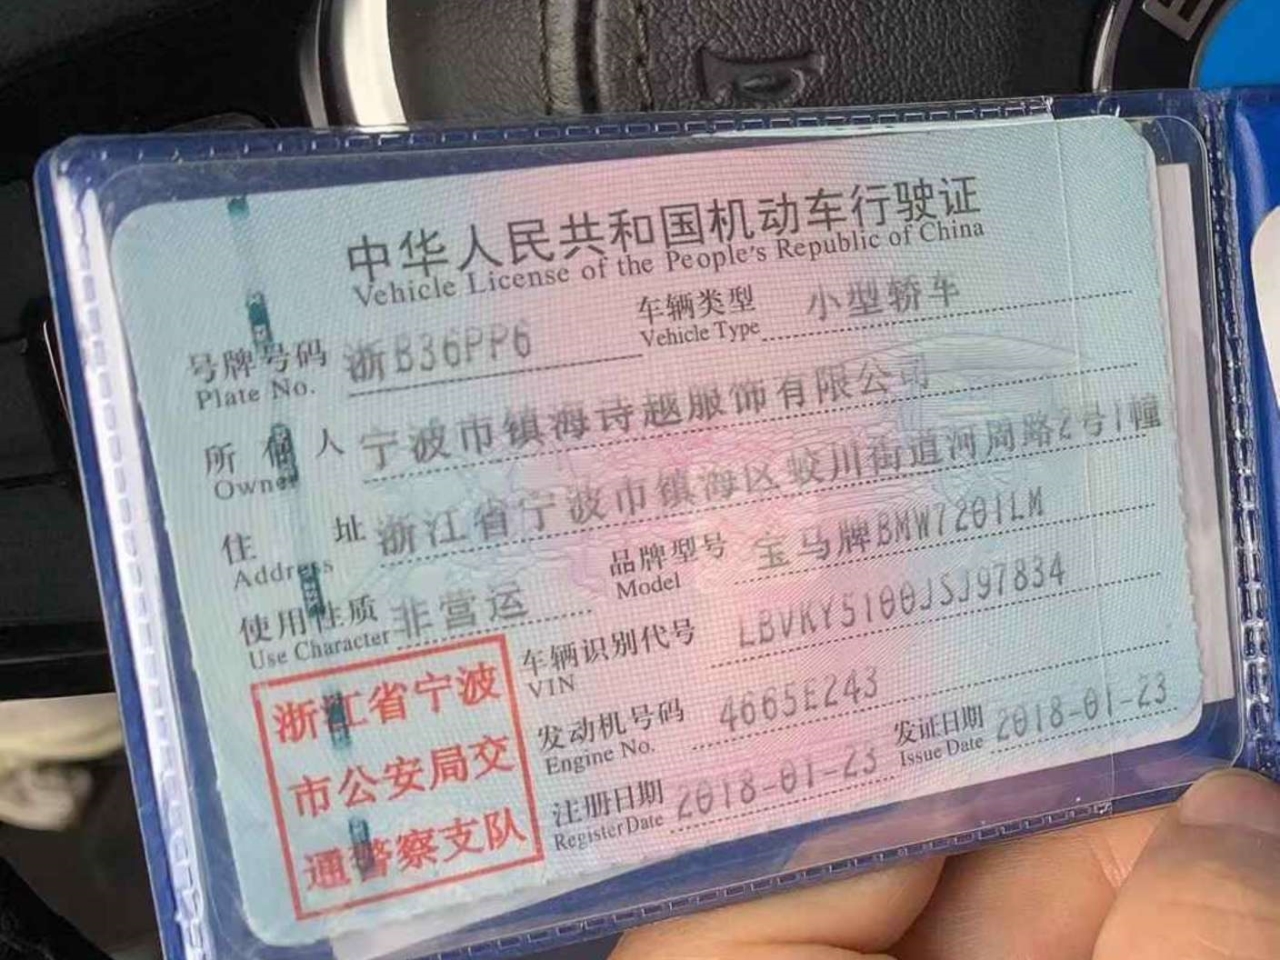 中华人民共和国机动车行驶证
Vehicle License of the People's Republic of China
号牌号码 浙B36PP6 车辆类型 小型轿车
Plate No. Vehicle Type
所有人 宁波市镇海诗越服饰有限公司
Owner
住址 浙江省宁波市镇海区蛟川街道河周路2号1幢
Address
使用性质 非营运 品牌型号 宝马牌BMW7201LM
Use Character Model
车辆识别代号 LBVKY5100JSJ97834
VIN
发动机号码 4665E243 发证日期 2018-01-23
Engine No. Issue Date
注册日期 2018-01-23
Register Date
浙江省宁波
市公安局交
通警察支队